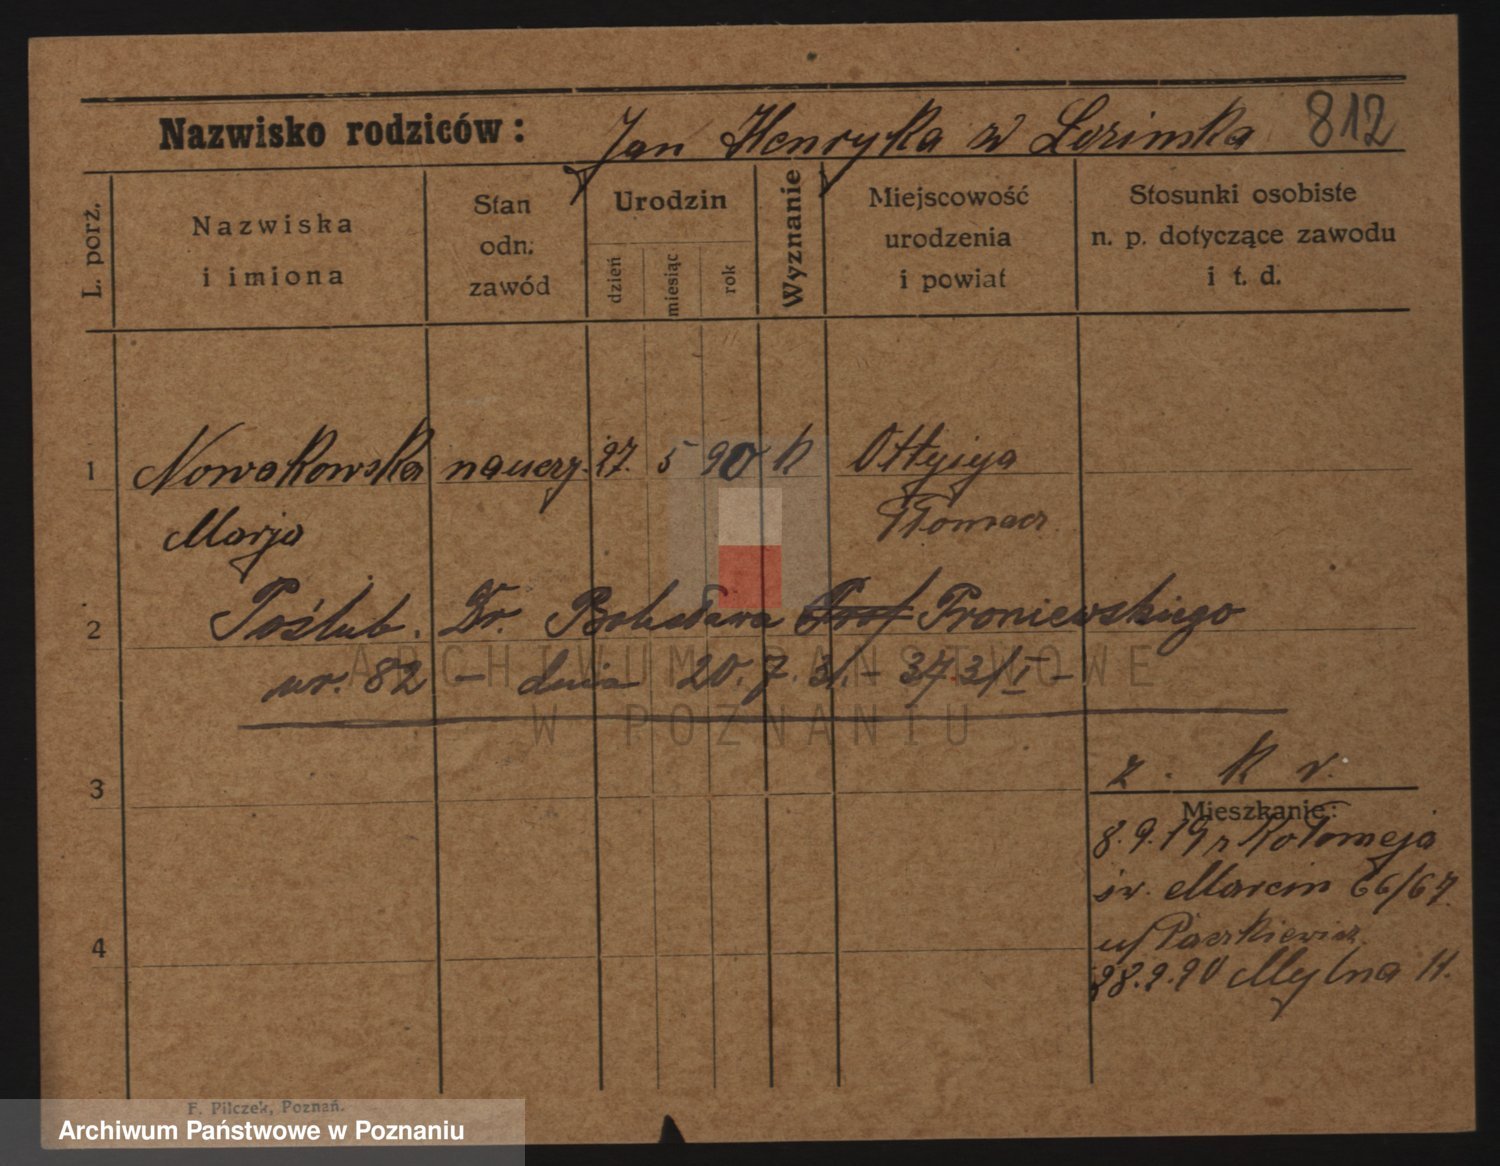 Nazwisko rodziców: Jan Henryka z Lozinska 812
L. porz.
Nazwiska i imiona
Stan odn. zawód
Urodzin
dzień
miesiąc
rok
Wyznanie
Miejscowość urodzenia i powiat
Stosunki osobiste n. p. dotyczące zawodu i t. d.
1 Nowakowska nauczy. 27. 5 90 k Ottynja
Marja Tłomacz
2 Poślub. Dr. Bohdana Prof Froniewskiego
ur. 82 – dnia 20.7.31. – 37.31 I –
ARCHIWUM PAŃSTWOWE
W POZNANIU
3 z. k r.
Mieszkanie:
8.9.19 z Kołomeja
św. Marcin 66/67.
u/ Paszkiewicz
4 28.9.20 Mylna 11.
F. Pilczek, Poznań.
Archiwum Państwowe w Poznaniu